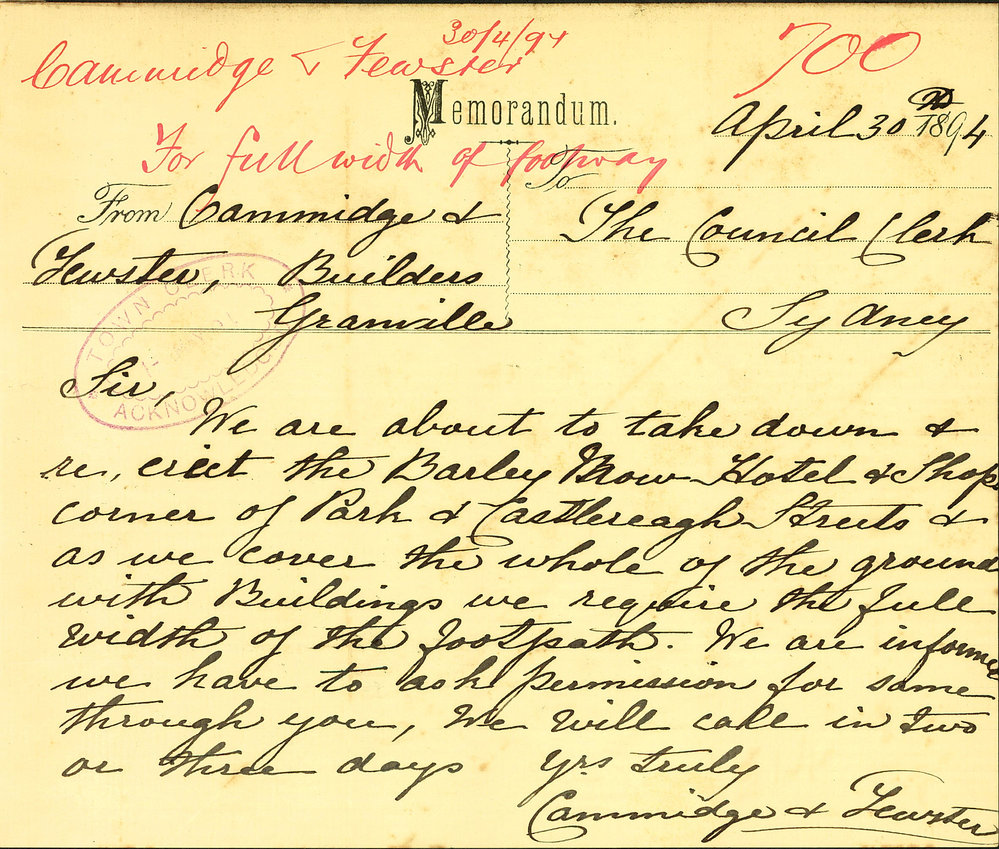 30/4/94
Cammidge & Fewster
700
Memorandum.
April 30 1894
For full width of footway
To
From Cammidge &
The Council Clerk
Fewster, Builders
Granville
Sydney
TOWN CLERK
ACKNOWLEDG
Sir,
We are about to take down &
re, erect the Barley Mow Hotel & Shops
corner of Park & Castlereagh Streets &
as we cover the whole of the ground
with Buildings we require the full
width of the footpath. We are informed
we have to ask permission for same
through you, We will call in two
or three days yrs truly
Cammidge & Fewster